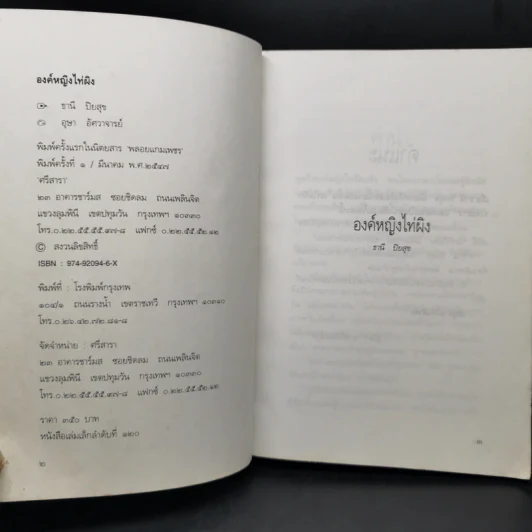 องค์หญิงไท่ผิง
ธานี ปิยสุข
อุษา อัศวาจารย์
พิมพ์ครั้งแรกในนิตยสาร 'พลอยแกมเพชร'
พิมพ์ครั้งที่ ๑ / มีนาคม พ.ศ.๒๕๔๗
'ศรีสารา'
๒๓ อาคารชาร์มส ซอยชิดลม ถนนเพลินจิต
แขวงลุมพินี เขตปทุมวัน กรุงเทพฯ ๑๐๓๓๐
โทร.๐.๒๒.๕๕.๕๕.๓๗-๘ แฟกซ์ ๐.๒๒.๕๕.๕๒.๑๒
© สงวนลิขสิทธิ์
ISBN : 974-92094-6-X
พิมพ์ที่ : โรงพิมพ์กรุงเทพ
๑๐๔/๑ ถนนรางน้ำ เขตราชเทวี กรุงเทพฯ ๑๐๓๑๐
โทร.๐.๒๖.๔๒.๗๒.๘๑-๘
จัดจำหน่าย : ศรีสารา
๒๓ อาคารชาร์มส ซอยชิดลม ถนนเพลินจิต
แขวงลุมพินี เขตปทุมวัน กรุงเทพฯ ๑๐๓๓๐
โทร.๐.๒๒.๕๕.๕๕.๓๗-๘ แฟกซ์ ๐.๒๒.๕๕.๕๒.๑๒
ราคา ๓๕๐ บาท
หนังสือเล่มเล็กลำดับที่ ๑๒๐
๒
องค์หญิงไท่ผิง
ธานี ปิยสุข